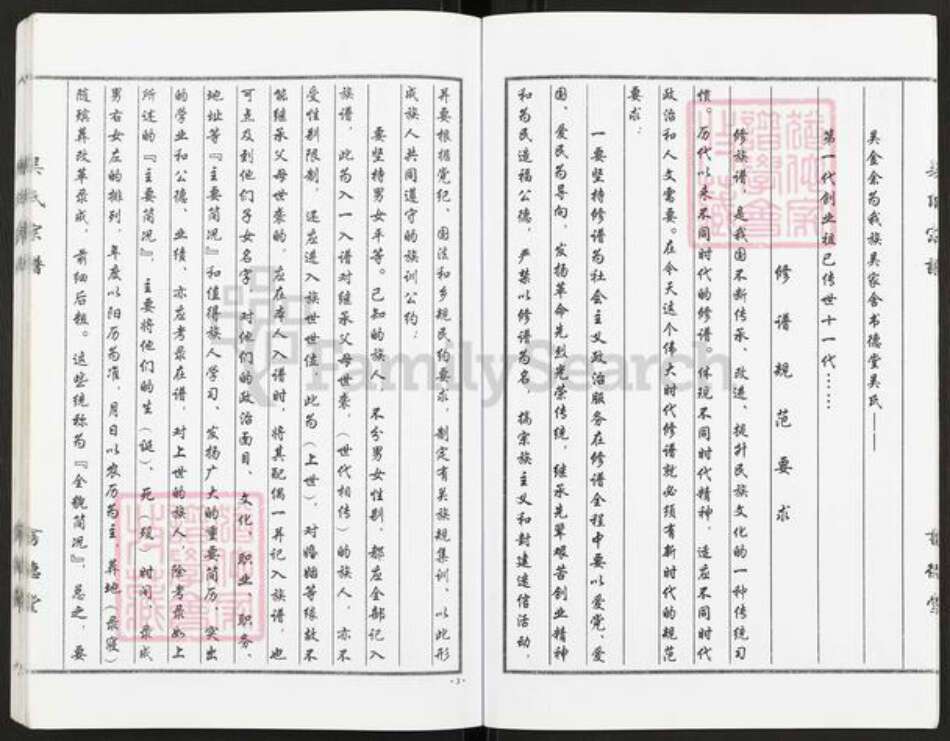 吴金余为我族吴家舍书德堂吴氏——
第一代创业祖已传世十一代……
修谱规范要求
修族谱,是我国不断传承、改进、提升民族文化的一种传统习
惯。历代以来不同时代的修谱,体现不同时代精神,适应不同时代
政治和人文需要。在今天这个伟大时代修谱就必须有新时代的规范
要求:
一要坚持修谱为社会主义政治服务在修谱全程中要以爱党、爱
国、爱民为导向,发扬革命先烈光荣传统,继承先辈艰苦创业精神
和为民造福公德,严禁以修谱为名,搞宗族主义和封建迷信活动,
并要根据党纪、国法和乡规民约要求,制定有关族规集训,以此形
成族人共同遵守的族训公约;
要坚持男女平等。已知的族人,不分男女性别,都应全部记入
族谱,此为入一入谱对继承父母世袭,(世代相传)的族人,亦不
受性别限制,还应进入族世世位,此为(上世),对婚姻等缘故不
能继承父母世袭的,应在本人入谱时,将其配偶一并记入族谱,也
可点及到他们子女名字,对他们的政治面目、文化、职业、职务、
地址等『主要简况』和值得族人学习、发扬广大的重要简历,突出
的学业和公德、业绩,亦应考录在谱,对上世的族人,除考录如上
所述的『主要简况』,主要将他们的生(诞)、死(殁)时间,录成
男右女左的排列,年度以阳历为准,月日以农历为主,葬地(录寝)
随殡葬改革录成,前细后粗。这些统称为『全貌简况』,总之,要
·3·
吴氏宗谱
书德堂
FamilySearch